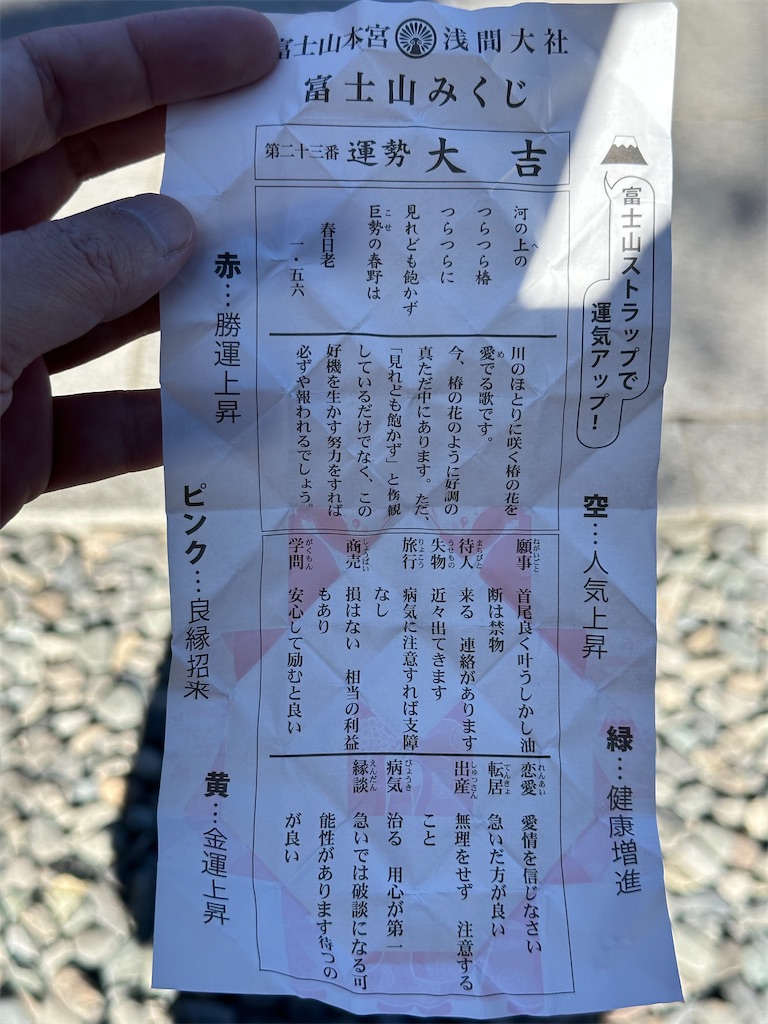 富士山本宮 浅間大社
富士山みくじ
第二十三番 運勢 大吉
河の上の
へ
つらつら椿
つらつらに
見れども飽かず
巨勢の春野は
こせ
春日老
一・五六
川のほとりに咲く椿の花を
愛でる歌です。
め
今、椿の花のように好調の
真ただ中にあります。ただ、
「見れども飽かず」と傍観
しているだけでなく、この
好機を生かす努力をすれば
必ずや報われるでしょう。
願事 首尾良く叶うしかし油
ねがいごと
断は禁物
待人 来る 連絡があります
まちびと
失物 近々出てきます
うせもの
旅行 病気に注意すれば支障
りょこう
なし
商売 損はない 相当の利益
しょうばい
もあり
学問 安心して励むと良い
がくもん
恋愛 愛情を信じなさい
れんあい
転居 急いだ方が良い
てんきょ
出産 無理をせず 注意する
しゅっさん
こと
病気 治る 用心が第一
びょうき
縁談 急いでは破談になる可
えんだん
能性があります待つの
が良い
富士山ストラップで
運気アップ!
空…人気上昇
緑…健康増進
赤…勝運上昇
ピンク…良縁招来
黄…金運上昇